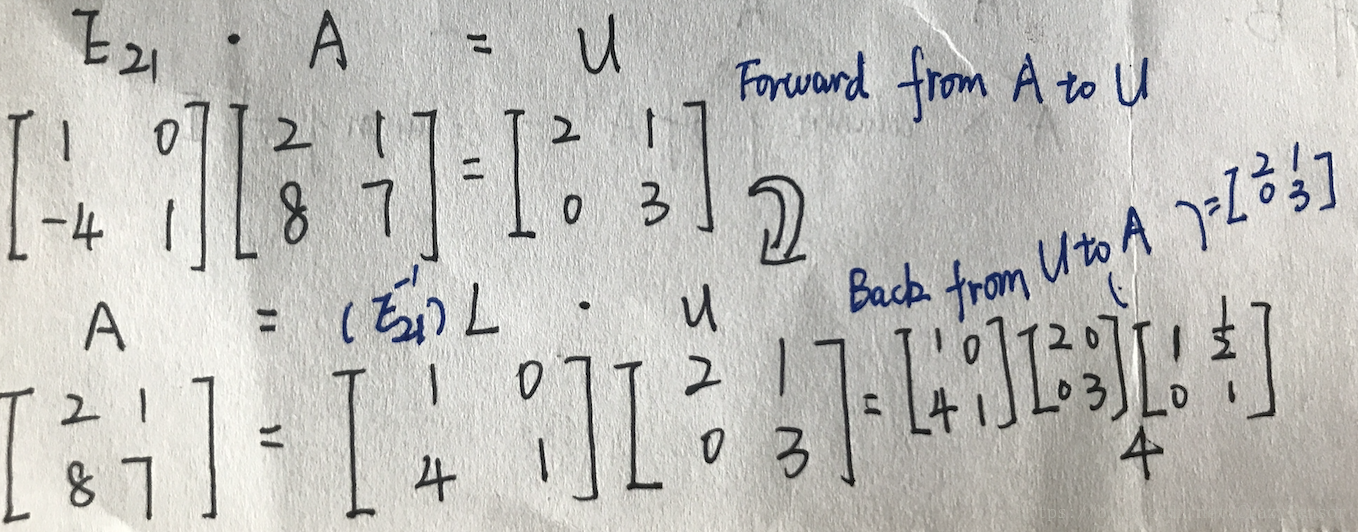 E₂₁ · A = U
Forward from A to U
[1 0; -4 1] [2 1; 8 7] = [2 1; 0 3]
Back from U to A ( ) = [2 1; 0 3]
A = (E₂₁⁻¹) L · U
[2 1; 8 7] = [1 0; 4 1] [2 1; 0 3] = [1 0; 4 1] [2 0; 0 3] [1 1/2; 0 1]